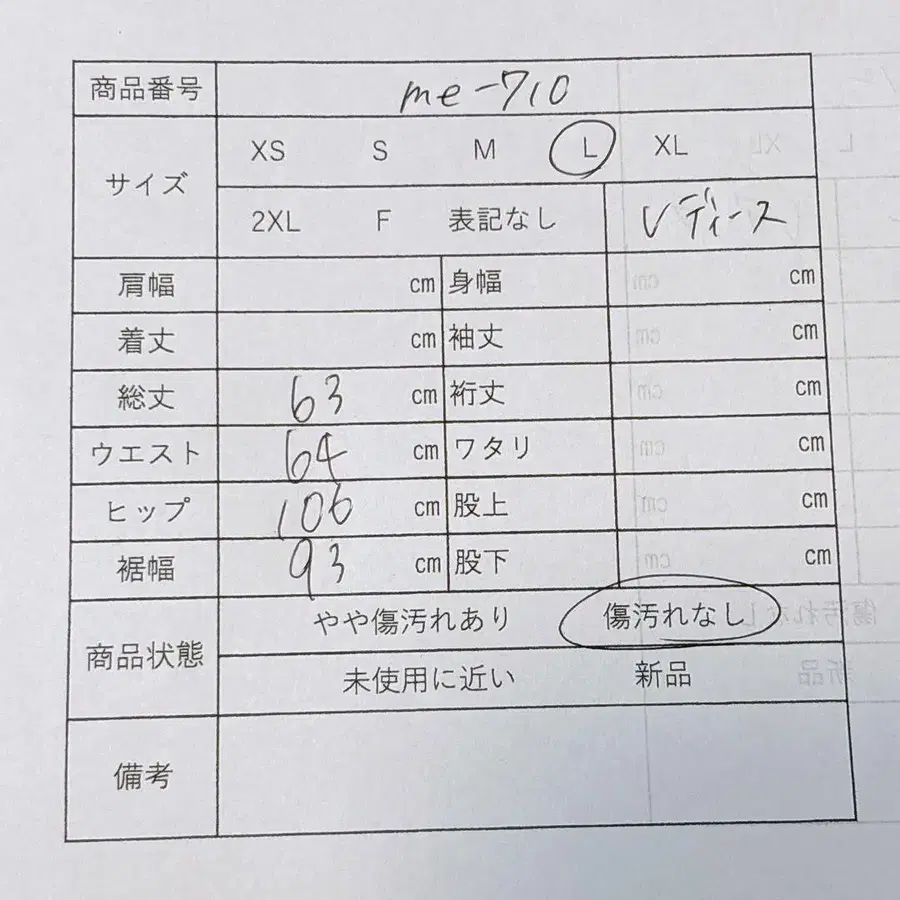 商品番号 me-710
サイズ XS S M L XL
2XL F 表記なし レディース
肩幅 cm 身幅 cm
着丈 cm 袖丈 cm
総丈 63 cm 裄丈 cm
ウエスト 64 cm ワタリ cm
ヒップ 106 cm 股上 cm
裾幅 93 cm 股下 cm
商品状態 やや傷汚れあり 傷汚れなし
未使用に近い 新品
備考